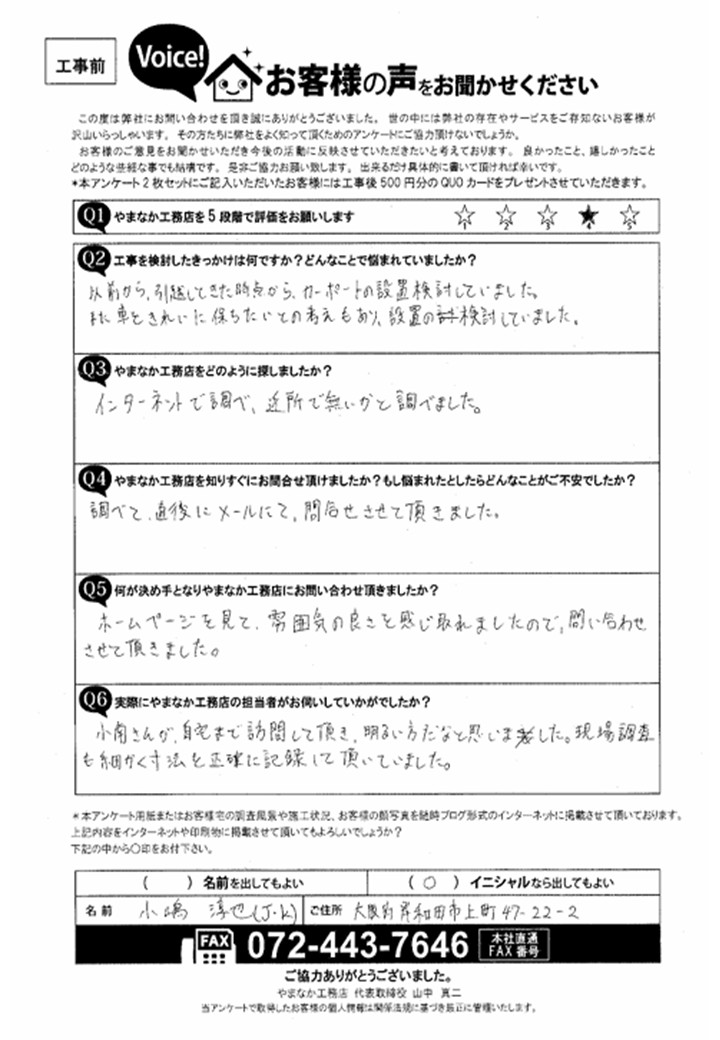 工事前
Voice!
お客様の声をお聞かせください
この度は弊社にお問い合わせを頂き誠にありがとうございました。世の中には弊社の存在やサービスをご存知ないお客様が
沢山いらっしゃいます。その方たちに弊社をよく知って頂くためのアンケートにご協力頂けないでしょうか。
お客様のご意見をお聞かせいただき今後の活動に反映させていただきたいと考えております。良かったこと、嬉しかったこと
どのような些細な事でも結構です。是非ご協力お願い致します。出来るだけ具体的に書いて頂ければ幸いです。
*本アンケート2枚セットにご記入いただいたお客様には工事後500円分のQUOカードをプレゼントさせていただきます。
Q1 やまなか工務店を5段階で評価をお願いします ☆1 ☆2 ☆3 ★4 ☆5
Q2 工事を検討したきっかけは何ですか?どんなことで悩まれていましたか?
以前から、引越してきた時点から、カーポートの設置検討していました。
また車をきれいに保ちたいとの考えもあり、設置の検討していました。
Q3 やまなか工務店をどのように探しましたか?
インターネットで調べ、近所で無いかと調べました。
Q4 やまなか工務店を知りすぐにお問合せ頂けましたか?もし悩まれたとしたらどんなことがご不安でしたか?
調べて、直後にメールにて、問合せさせて頂きました。
Q5 何が決め手となりやまなか工務店にお問い合わせ頂きましたか?
ホームページを見て、雰囲気の良さを感じ取れましたので、問い合わせ
させて頂きました。
Q6 実際にやまなか工務店の担当者がお伺いしていかがでしたか?
小南さんが、自宅まで訪問して頂き、明るい方だなと思いました。現場調査
も細かく寸法を正確に記録して頂いていました。
*本アンケート用紙またはお客様宅の調査風景や施工状況、お客様の顔写真を随時ブログ形式のインターネットに掲載させて頂いております。
上記内容をインターネットや印刷物に掲載させて頂いてもよろしいでしょうか?
下記の中から○印をお付下さい。
( ) 名前を出してもよい ( ○ ) イニシャルなら出してもよい
名前 小嶋 淳也(J.K) ご住所 大阪府岸和田市上町47-22-2
FAX 072-443-7646 本社直通
FAX番号
ご協力ありがとうございました。
やまなか工務店 代表取締役 山中 真二
当アンケートで取得したお客様の個人情報は関係法規に基づき厳正に管理いたします。